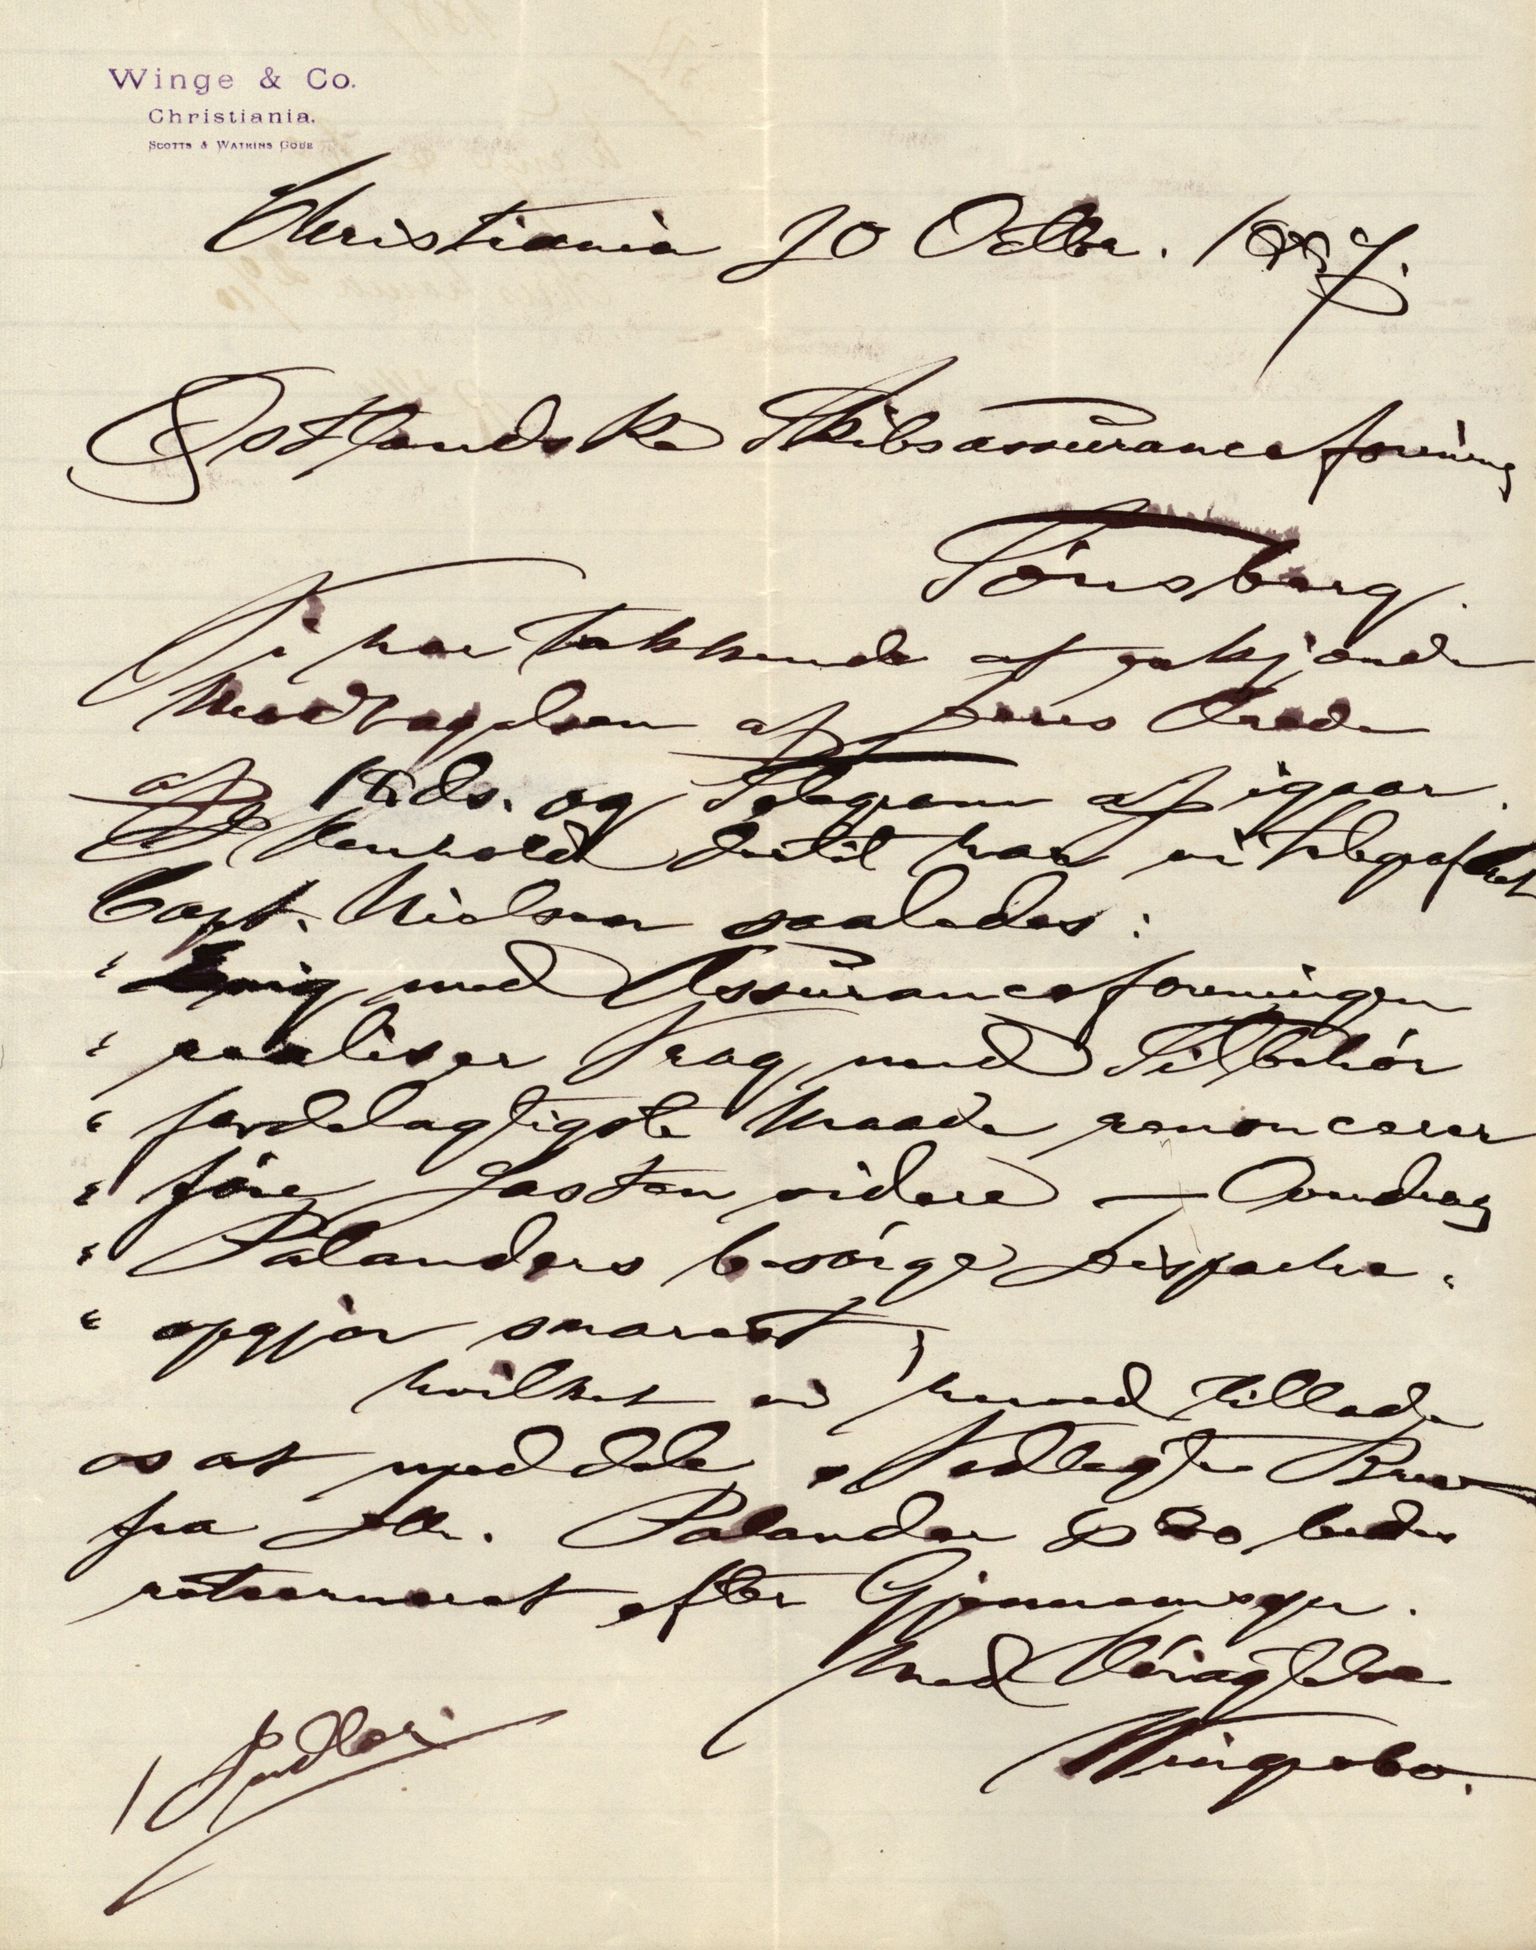 Winge & Co.
Christiania.
Scotts & Watkins Code
Christiania 20 Octbr. 1887.
Østlandske Skibsassuranceforening
Tönsberg.
Vi har takkende at erkjende
Modtagelsen af Deres Ærede
af 18 ds. og Telegram af igaar.
I Henhold dertil har vi telegraferet
Capt. Nielsen saaledes:
" Enig med Assuranceforeningen
" realiser Vrag med Tilbehör
" fordelagtigste Maade renoncerer
" före Lasten videre — Anmodning
" Palanders besörge Dispache-
" opgjör snarest,
hvilket vi herved tillade
os at meddele. Vedlagte Brev
fra Hr. Palander & Co bedes
retourneret efter Gjennemsyn.
Med Höiagtelse
Winge & Co.
1 Indlæg